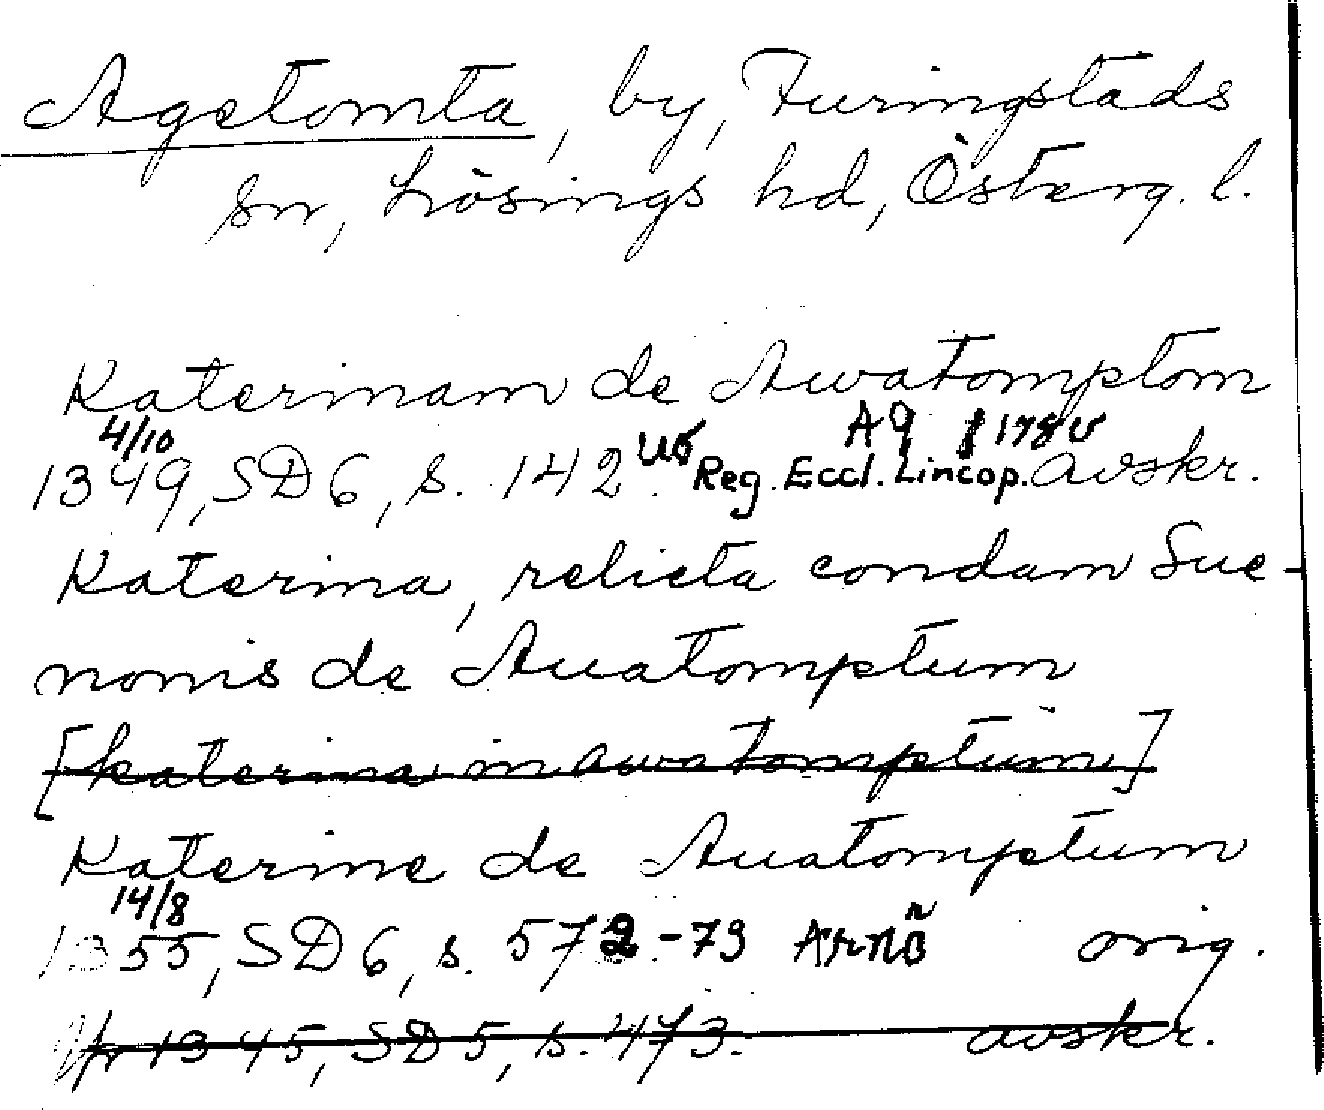 Agetomta, by, Furingstads
sn, Lösings hd, Österg. l.
Katerinam de Awatomptom
4/10 A9 f 178 v
1349, SD 6, s. 142 Reg. Eccl. Lincop. avskr.
Katerina, relicta condam Sue-
nonis de Auatomptum
[katerina in awatomptum]
Katerine de Auatomptum
14/8
1355, SD 6, s. 572-73 orig.
1345, SD 5, s. 473. avskr.